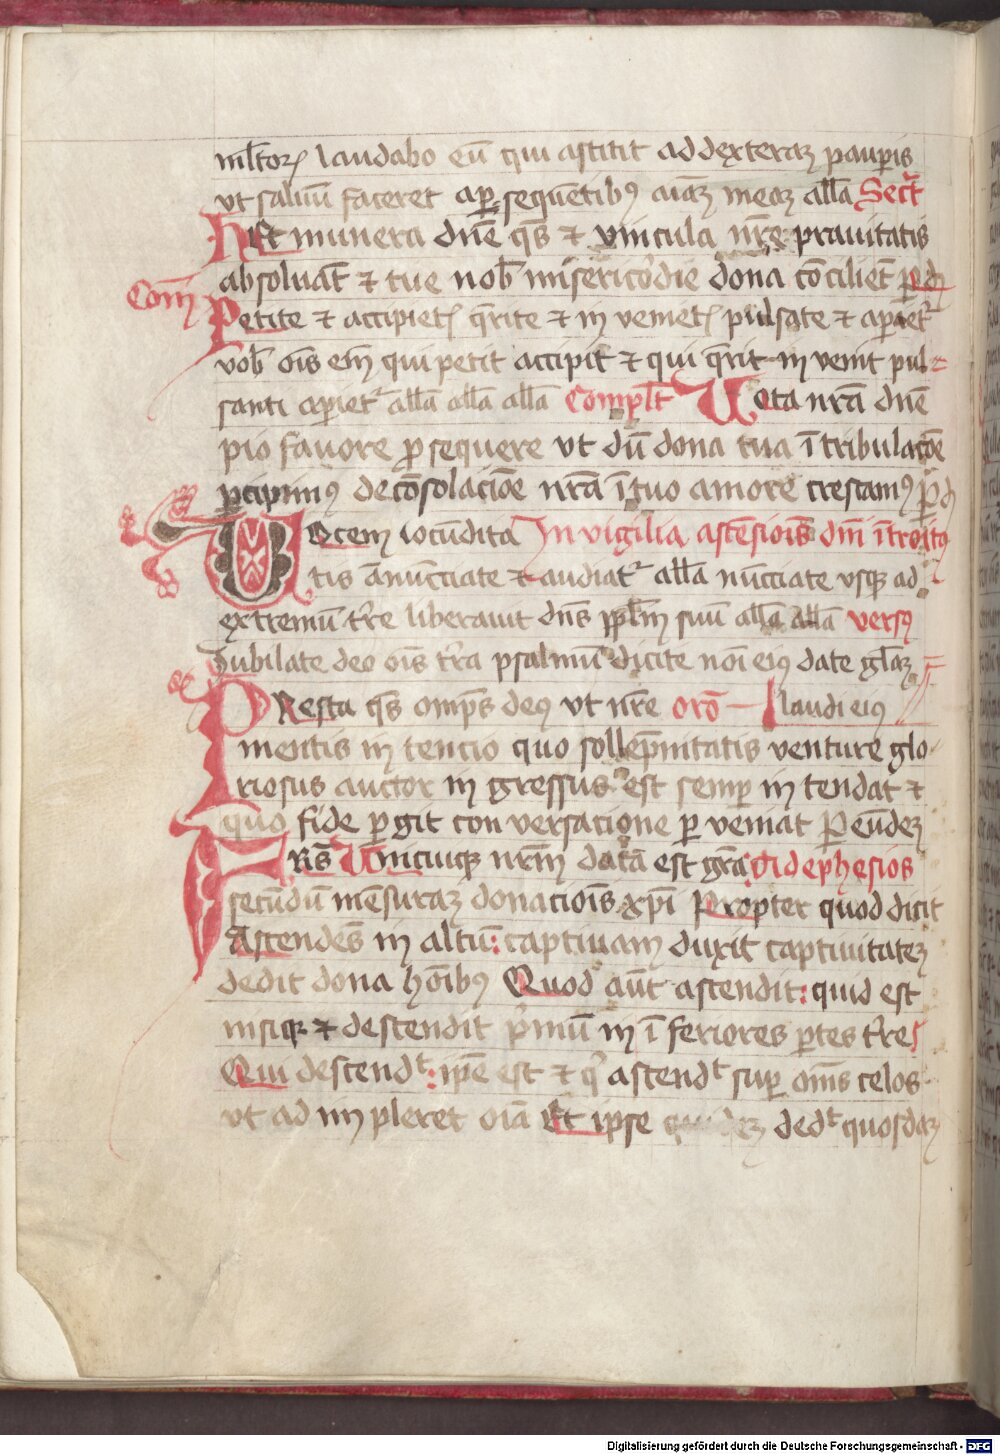 ml̅torꝝ laudabo eu̅ qui astitit ad dexteraꝫ paup̲is
ut saluu̅ faceret a p̲sequentibꝰ aia̅ꝫ meaꝫ all̅a Secr̅
Hec munera dn̅e qs̅ ⁊ vincula nr̅e prauitatis
absolua̅t ⁊ tue nob̅ misericordie dona co̅ciliet p̲ d
Com̅
Petite ⁊ accipietꝭ q̅rite ⁊ in venietꝭ pulsate ⁊ ap̲iet᷑
vob̅ ois̅ em̅ qui petit accipit ⁊ qui q̅rit in venit pul-
santi ap̲iet᷑ all̅a all̅a all̅a Compl̅t Vota nr̅a dn̅e
pio fauore p̲sequere vt du̅ dona tua i̅ tribulac̅oe
p̲cipimꝰ de co̅solacio̅e nr̅a i̅ tuo amore crescamꝰ P̲ d
Vocem iocu̅dita In vigilia asce̅siois̅ dn̅i i̅troitꝰ
tis a̅nu̅cciate ⁊ audiat᷑ all̅a nu̅cciate vsqꝫ ad
extremu̅ t̅re liberauit dn̅s ppl̅m suu̅ all̅a all̅a versꝰ
Jubilate deo ois̅ t̅ra psalmu̅ dicite no̅i eiꝰ date gl̅aꝫ
PResta qs̅ omp̅s deꝰ vt nr̅e oro̅ laudi eiꝰ
mentis in tencio quo sollep̅nitatis venture glo
riosus auctor in gressus est semp̲ in tendat ⁊
quo fide p̲git con versacione p̲ veniat P̲ eu̅deꝫ
FRs̅ Vnicuiqꝫ nr̅m data̅ est gr̅a Ad ephesios
secu̅du̅ me̅suraꝫ donaciois̅ xp̅i Propter quod dicit
Ascende̅s in altu̅: captiuam duxit captiuitateꝫ
dedit dona ho̅ibꝰ Quod au̅t ascendit: quid est
nisi qꝛ ⁊ descendit p̅mu̅ in i̅ feriores p̲tes t̅reꝭ
Qui descendᵗ: ip̅e est ⁊ qⁱ ascendᵗ sup̲ om̅s celos
vt ad im pleret oi̅a Et ipse quideꝫ dedᵗ quosdaꝫ
Digitalisierung gefördert durch die Deutsche Forschungsgemeinschaft - DFG